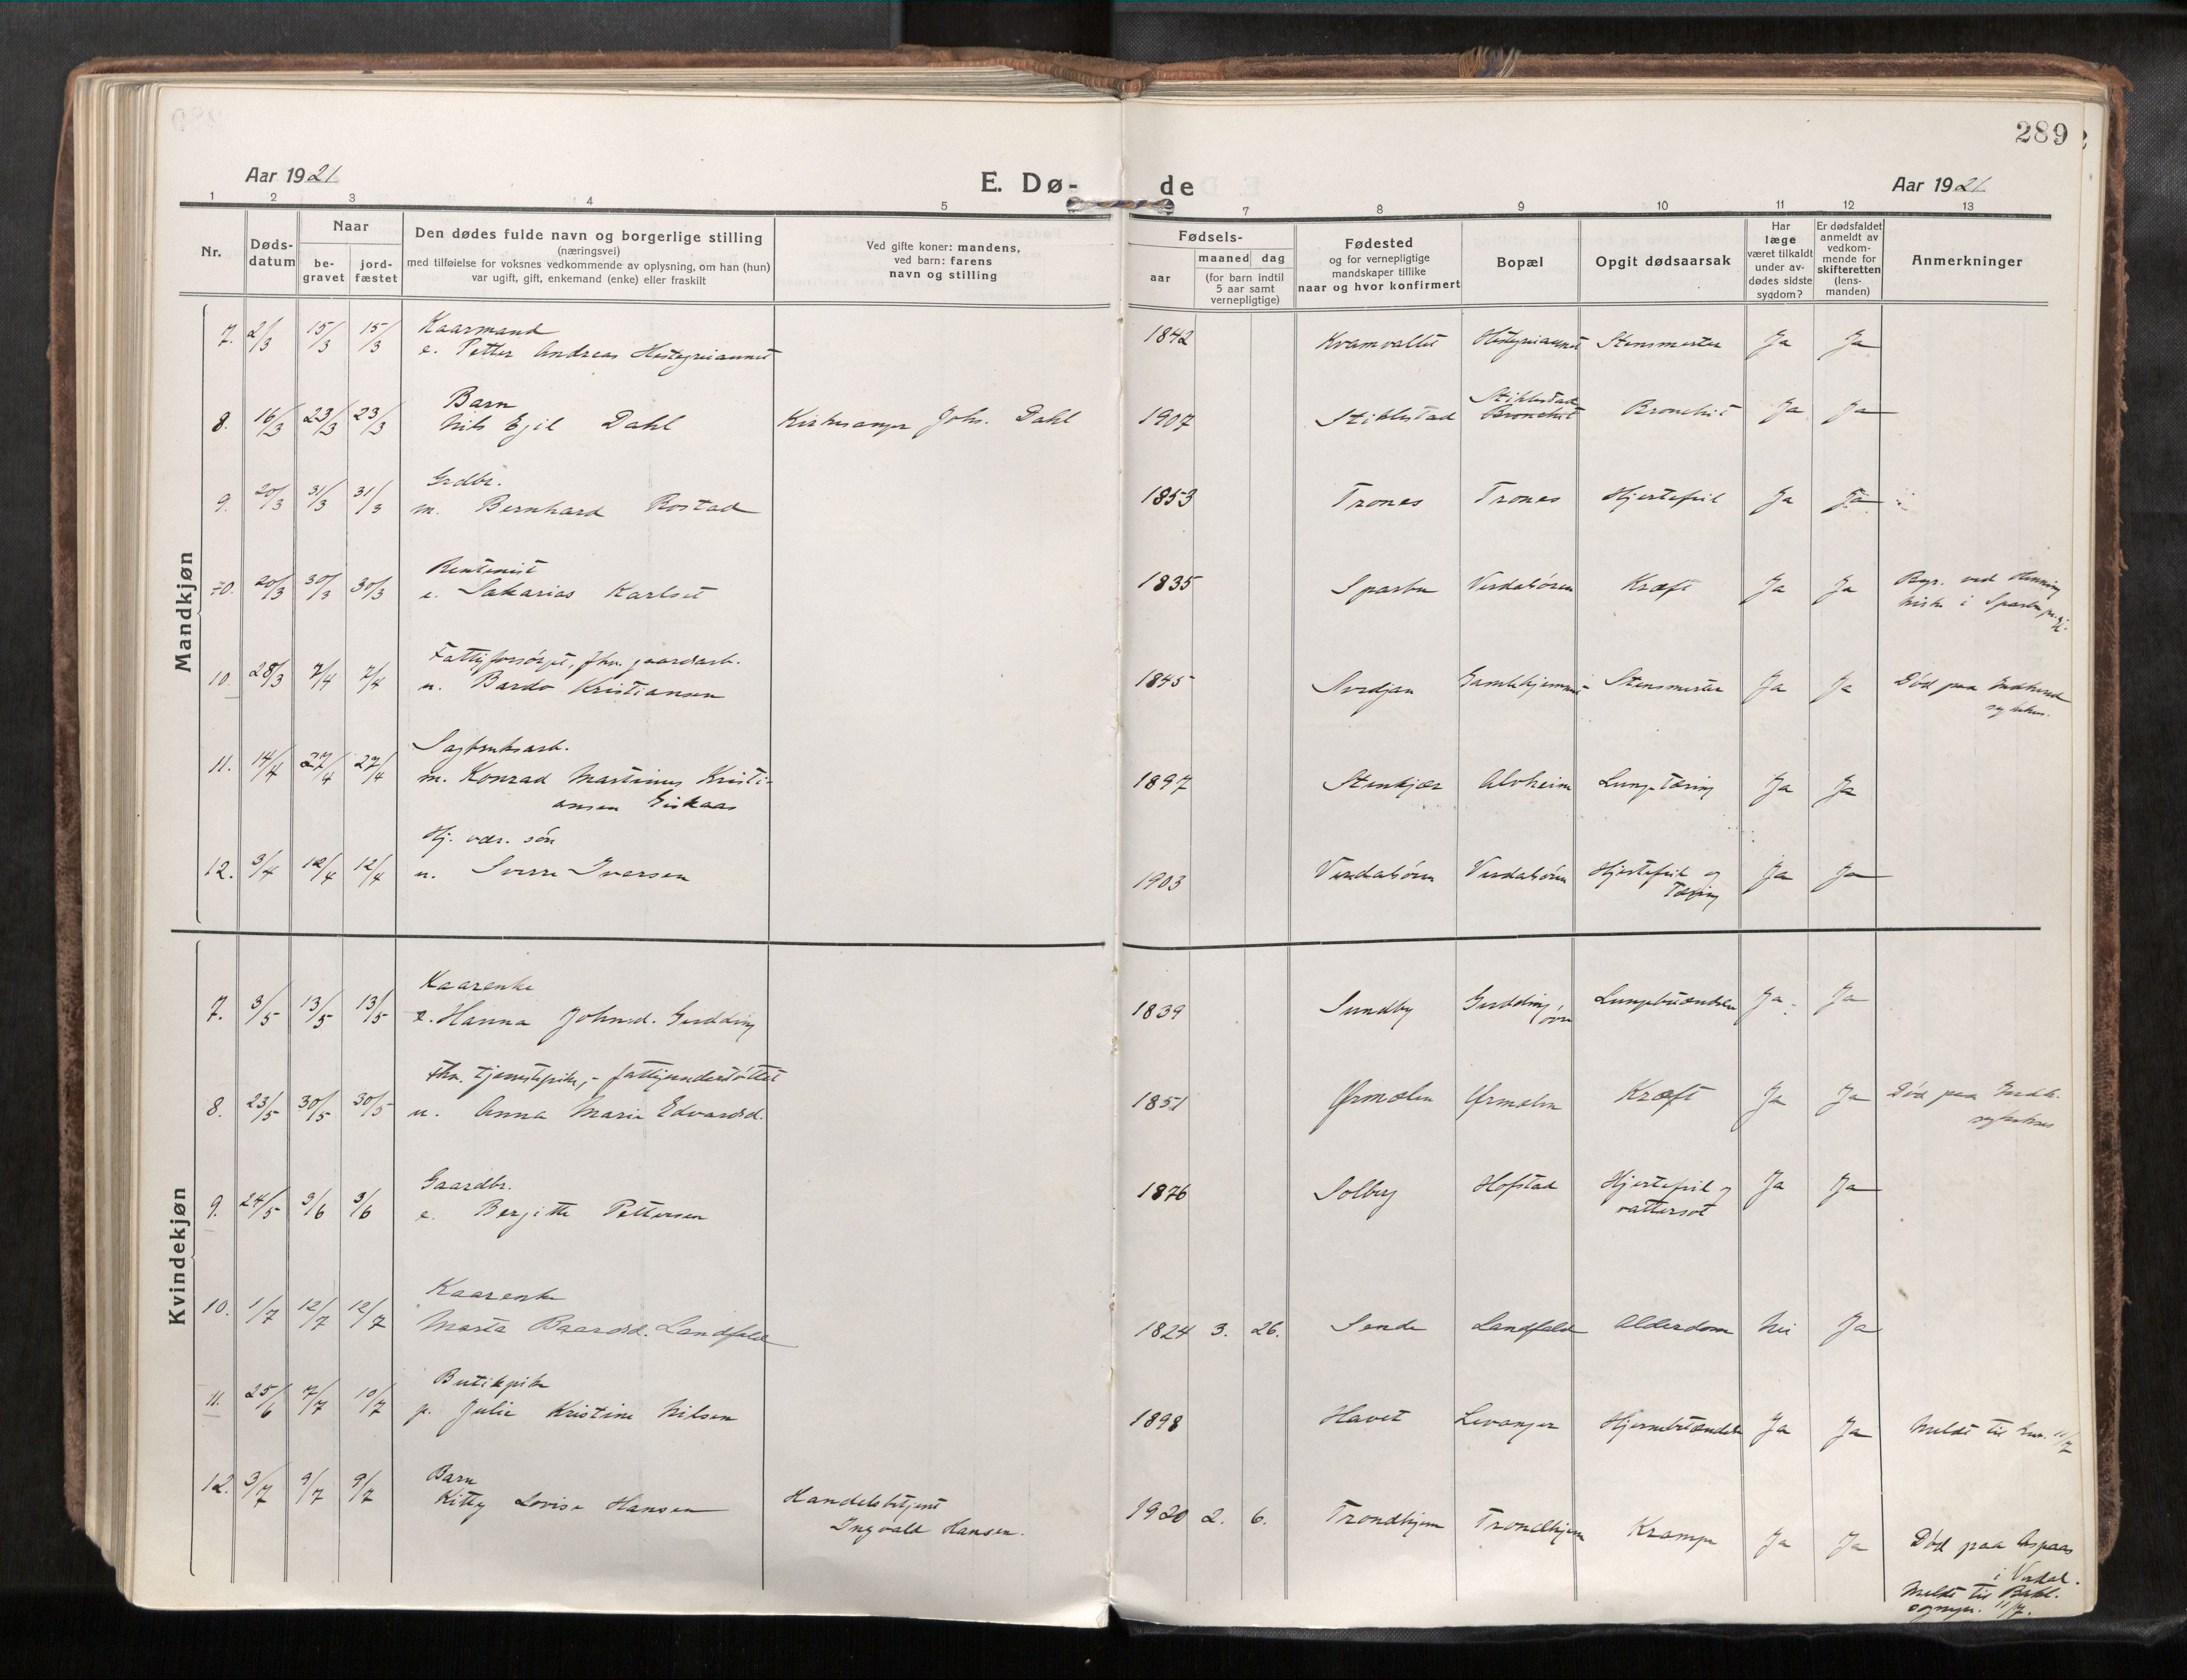 289
Aar 1921
E. Dø-
de
Aar 1921
1 2 3 4 5 7 8 9 10 11 12 13
Nr.
Døds-
datum
Naar
be-
gravet
jord-
fæstet
Den dødes fulde navn og borgerlige stilling
(næringsvei)
med tilføielse for voksnes vedkommende av oplysning, om han (hun)
var ugift, gift, enkemand (enke) eller fraskilt
Ved gifte koner: mandens,
ved barn: farens
navn og stilling
Fødsels-
aar
maaned dag
(for barn indtil
5 aar samt
vernepligtige)
Fødested
og for vernepligtige
mandskaper tillike
naar og hvor konfirmert
Bopæl
Opgit dødsaarsak
Har
læge
været tilkaldt
under av-
dødes sidste
sygdom?
Er dødsfaldet
anmeldt av
vedkom-
mende for
skifteretten
(lens-
manden)
Anmerkninger
Mandkjøn
Kaarmand
7. 2/3 15/3 15/3 e. Petter Andreas Hestegreiaunet 1842 Kvamvaltet Hestgreiaunet Stensmerter Ja Ja
Barn Stiklestad
8. 16/3 23/3 23/3 Nils Egil Dahl Kirkesanger Johs. Dahl 1907 Stiklestad Bronchit Bronchit Ja Ja
Grdbr.
9. 20/3 31/3 31/3 m. Bernhard Rostad 1853 Trones Trones Hjertefeil Ja Ja
Rentenist
10. 20/3 30/3 30/3 e. Sakarias Karlset 1835 Sparbu Verdalsøren Kræft Ja Ja Begr. ved Henning
kirke i Sparbu
Fattigforsørget, fhv. gaardarb.
10. 28/3 7/4 7/4 u. Bardo Kristiansen 1845 Gamlehjemmet Stensmerter Ja Ja Død paa Indherred
sykehus.
Sagbruksarb.
11. 14/4 27/4 27/4 m. Konrad Martinus Kristi-
ansen Giskaas 1897 Stenkjær Alvheim Lungetæring Ja Ja
Hj. vær. søn
12. 3/4 12/4 12/4 u. Sverre Iversen 1903 Verdalsøren Verdalsøren Hjertefeil og
Tæring Ja Ja
Kvindekjøn
Kaarenke
7. 3/5 13/5 13/5 e. Hanna Johnsd. Gudding 1839 Sundby Gudding,
øvre Lungebetændelse Ja Ja
Fhv. tjenestepike, - fattigunderstøttet
8. 23/5 30/5 30/5 u. Anna Marie Edvardsd. 1851 Ørmelen Ørmelen Kræft Ja Ja Død paa Indh.
sykehus
Gaardbr.
9. 24/5 3/6 3/6 e. Bergitte Pettersen 1876 Solberg Hofstad Hjertefeil og
vattersot Ja Ja
Kaarenke
10. 1/7 12/7 12/7 Marta Baardsd. Landfald 1824 3. 26. Sende Landfald Alderdom Nei Ja
Butikpike
11. 25/6 7/7 10/7 p. Julie Kristine Nilsen 1898 Havet Levanger Hjernebetændelse Ja Ja Meldt til Lev. 11/7
Barn
12. 3/7 9/7 9/7 Kitty Lovise Hansen Handelsbetjent
Ingvald Hansen. 1920 2. 6. Trondhjem Trondhjem Krampe Ja Ja Død paa Aspaas
i Verdal.
Meldt til Bakl.
sognepr. 11/7.